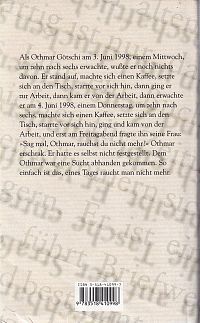 Als Othmar Götschi am 3. Juni 1998, einem Mittwoch,
um zehn nach sechs erwachte, wußte er noch nichts
davon. Er stand auf, machte sich einen Kaffee, setzte
sich an den Tisch, starrte vor sich hin, dann ging er
zur Arbeit, dann kam er von der Arbeit, dann erwachte
er am 4. Juni 1998, einem Donnerstag, um zehn nach
sechs, machte sich einen Kaffee, setzte sich an den
Tisch, starrte vor sich hin, ging und kam von der
Arbeit, und erst am Freitagabend fragte ihn seine Frau:
»Sag mal, Othmar, rauchst du nicht mehr?« Othmar
erschrak. Er hatte es selbst nicht festgestellt. Dem
Othmar war eine Sucht abhanden gekommen. So
einfach ist das, eines Tages raucht man nicht mehr.